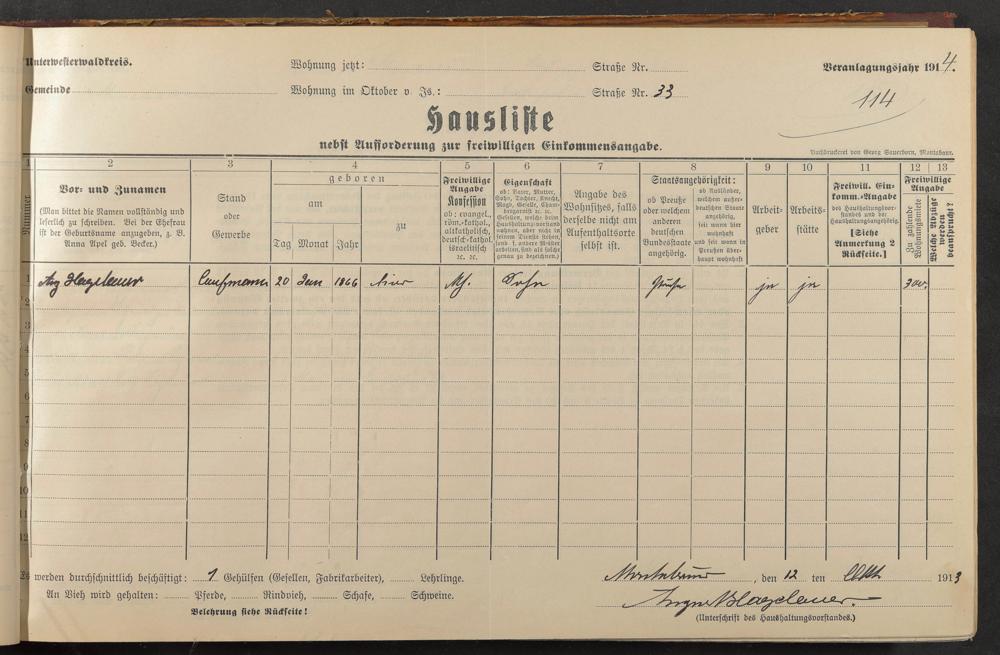 Unterwesterwaldkreis. Wohnung jetzt: Straße Nr. Veranlagungsjahr 1914.
Gemeinde Wohnung im Oktober v Js.: Straße Nr. 33
114
Hausliste
nebst Aufforderung zur freiwilligen Einkommensangabe.
Buchdruckerei von Georg Sauerborn, Montabaur.
1 2 3 4 5 6 7 8 9 10 11 12 13
Nummer
Vor- und Zunamen
(Man bittet die Namen vollständig und
leserlich zu schreiben. Bei der Ehefrau
ist der Geburtsname anzugeben, z. B.
Anna Apel geb. Becker.)
Stand
oder
Gewerbe
geboren
am
zu
Tag Monat Jahr
Freiwillige
Angabe
Konfession
ob: evangel.,
röm.-kathol.,
altkatholisch,
deutsch-kathol.
israelitisch
ec. ec.
Eigenschaft
Angabe des
Wohnsitzes, falls
derselbe nicht am
Aufenthaltsorte
selbst ist.
Staatsangehörigkeit:
ob Preuße
oder welchem
anderen
deutschen
Bundesstaate
angehörig.
ob Ausländer,
welchem außer-
deutschen Staate
angehörig,
seit wann hier
wohnhaft
und seit wann in
Preußen über-
haupt wohnhaft
Arbeit-
geber
Arbeits-
stätte
Freiwill. Ein-
komm.-Angabe
des Haushaltungsvor-
standes und der
Haushaltungsangehörig.
[Siehe
Anmerkung 2
Rückseite.]
Freiwillige
Angabe
Zu zahlende
Wohnungsmiete
Welche Abzüge
werden
beansprucht?
1 Aug Hagelauer Caufmann 20 Juni 1866 Sohn 300.
2
3
4
5
6
7
8
9
10
11
12
Es werden durchschnittlich beschäftigt: 1 Gehülfen (Gesellen, Fabrikarbeiter), Lehrlinge.
An Vieh wird gehalten: Pferde, Rindvieh, Schafe, Schweine.
Belehrung siehe Rückseite!
Montabaur, den 12 ten 1913
August Hagelauer.
(Unterschrift des Haushaltungsvorstandes.)